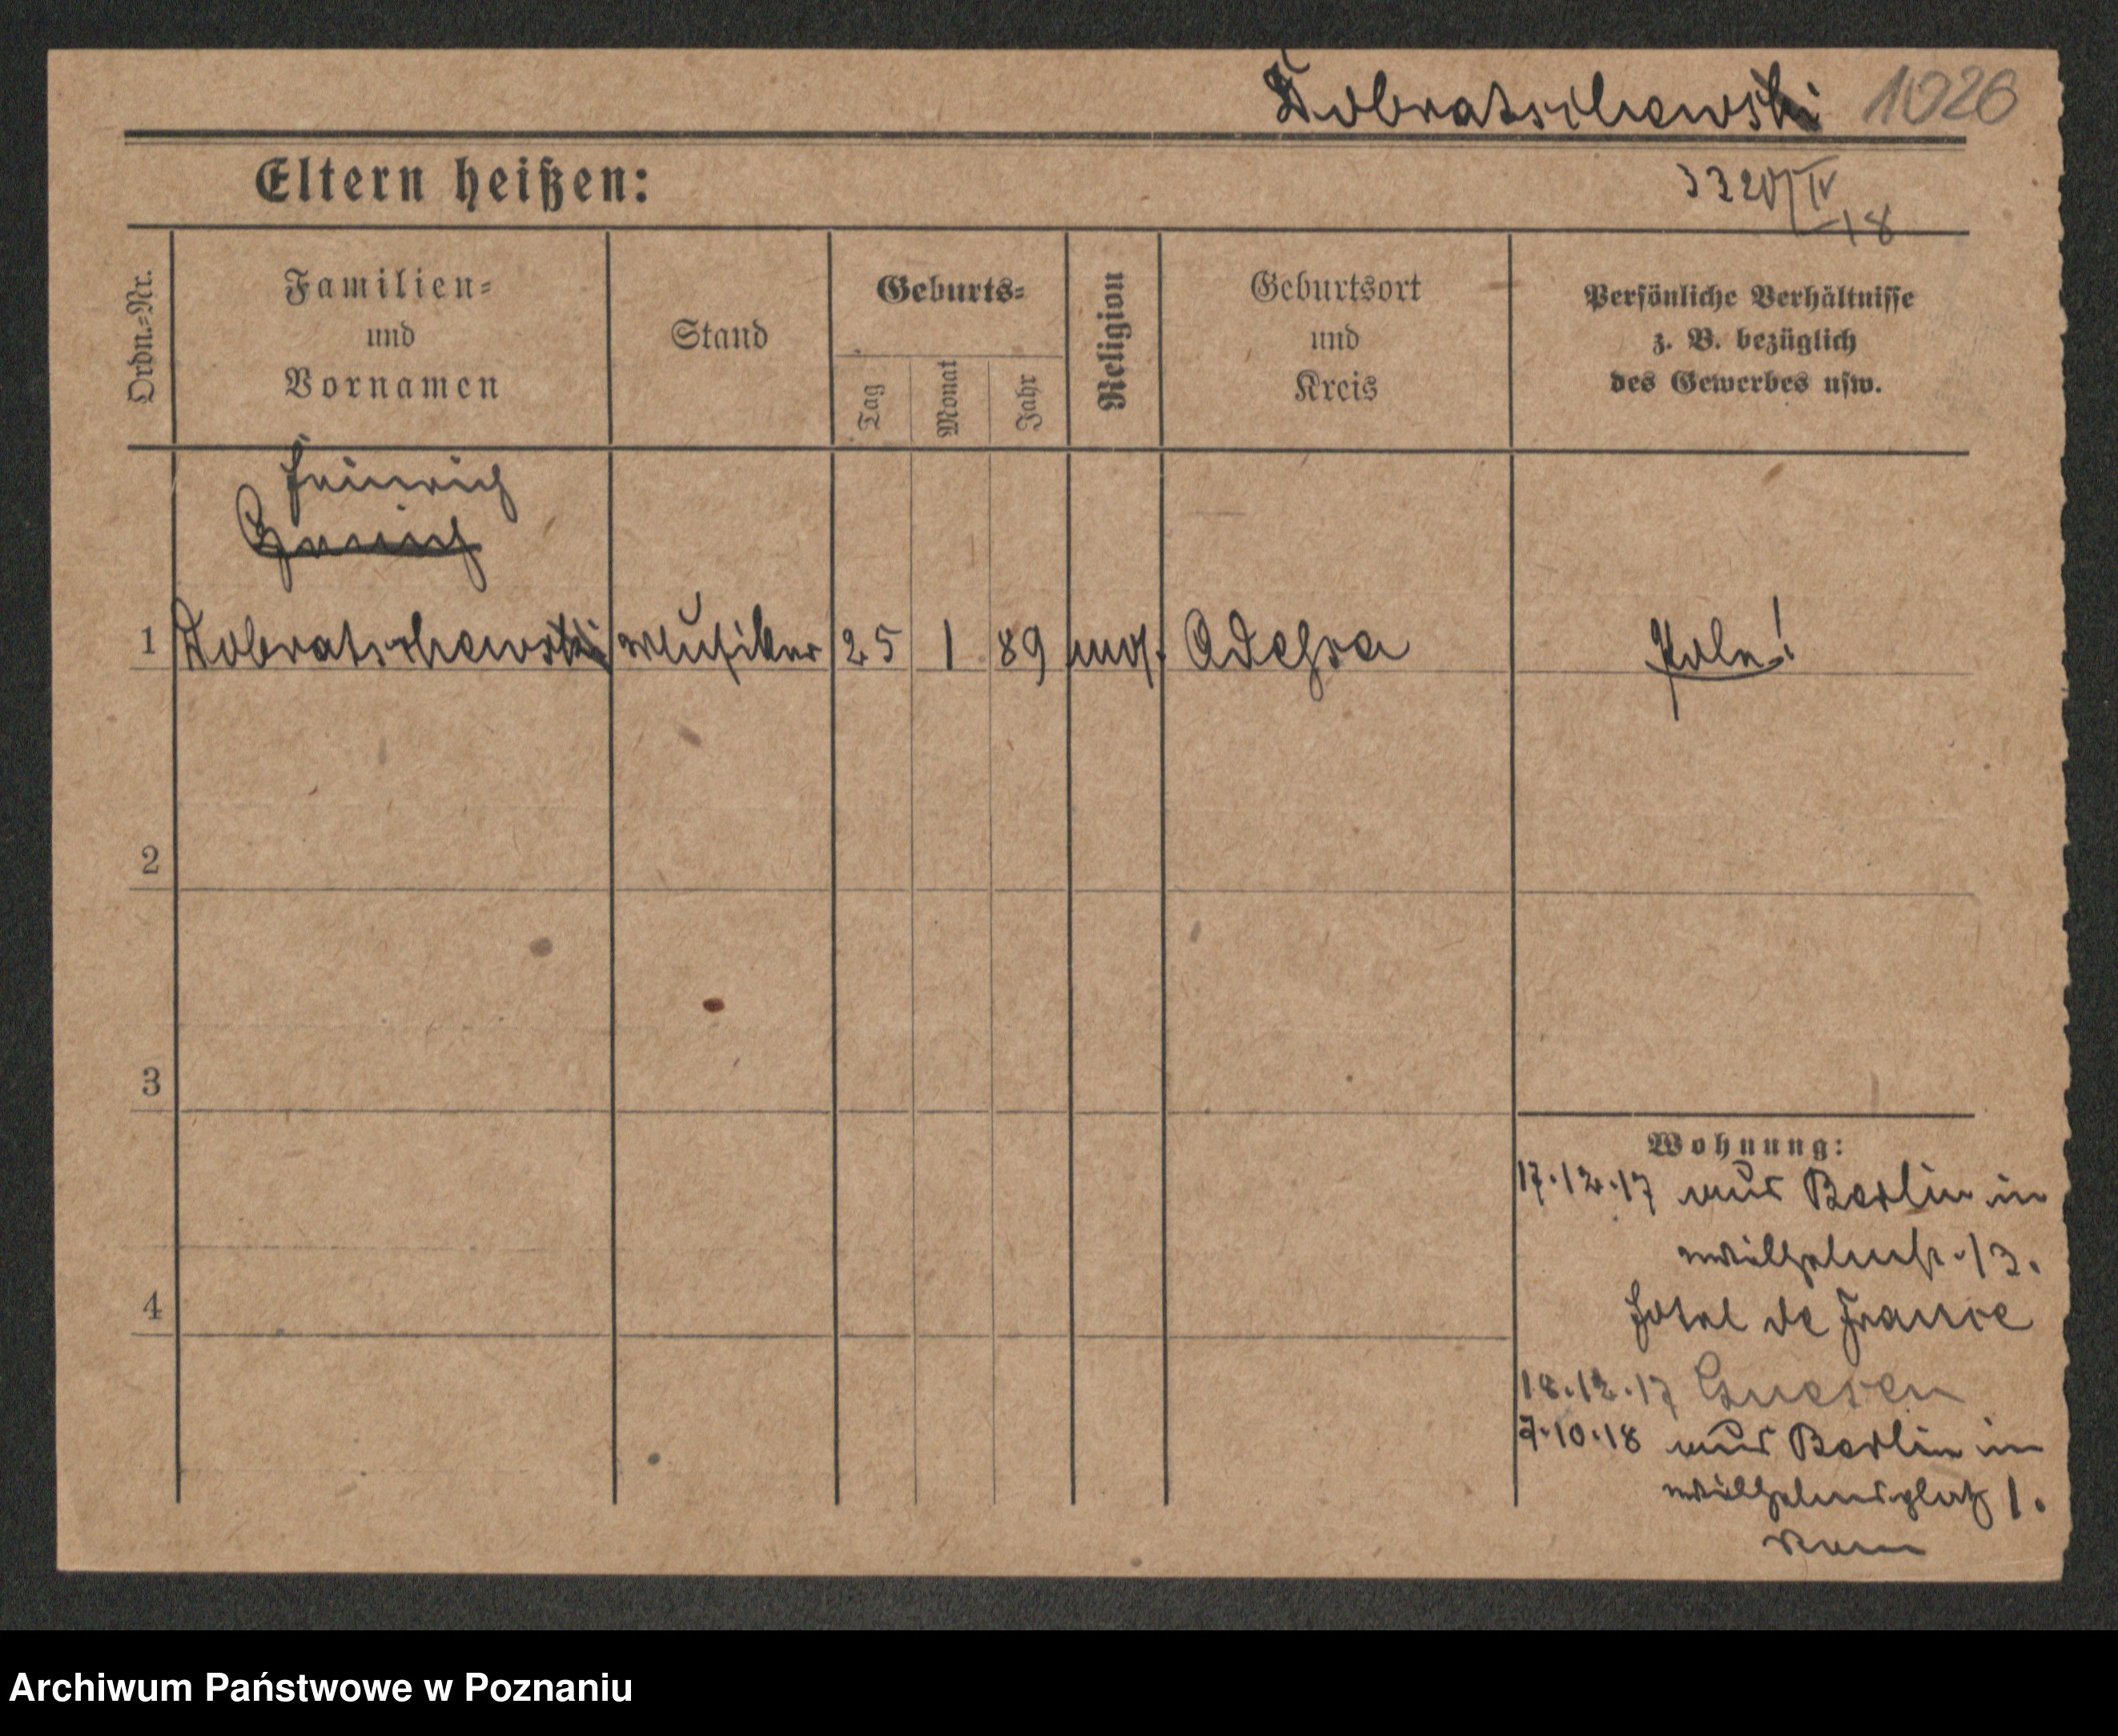 Dobratschewski 1026
Eltern heißen:
3320/IV
18
Ordn.=Nr.
Familien=
und
Vornamen
Stand
Geburts=
Tag
Monat
Jahr
Religion
Geburtsort
und
Kreis
Persönliche Verhältnisse
z. B. bezüglich
des Gewerbes usw.
Heinrich
1 Dobratschewski Musiker 25 1 89 mos. Odessa Pole!
2
3
4
Wohnung:
17.12.17 aus Berlin in
Wilhelmstr. 13.
Hotel de France
18.12.17 Gnesen
7.10.18 aus Berlin in
Wilhelmsplatz 1.
Archiwum Państwowe w Poznaniu